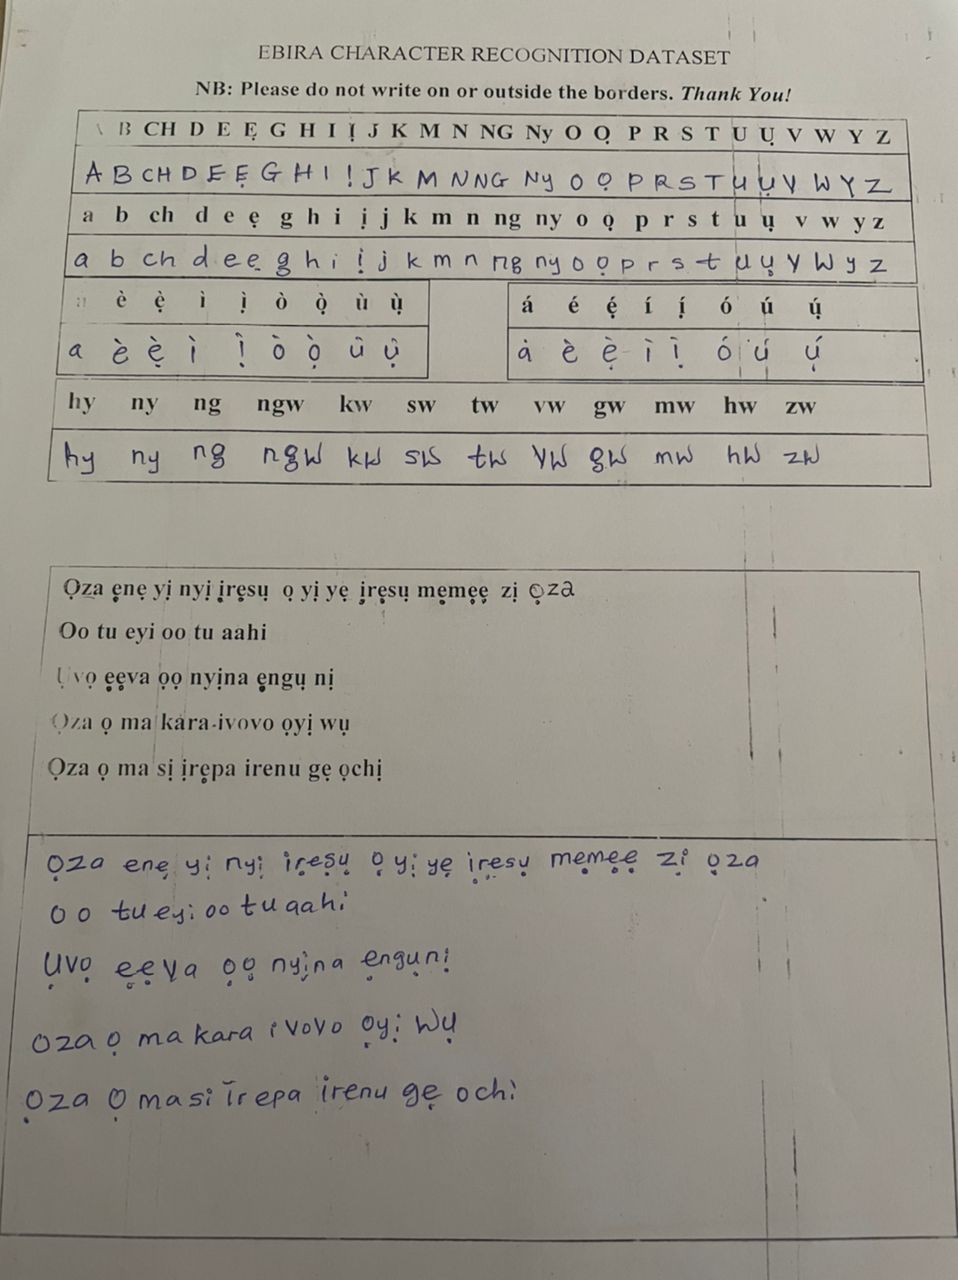 EBIRA CHARACTER RECOGNITION DATASET
NB: Please do not write on or outside the borders. Thank You!
A B CH D E Ẹ G H I Ị J K M N NG Ny O Ọ P R S T U Ụ V W Y Z
A B CH D E Ẹ G H I Ị J K M N NG Ny O Ọ P R S T U Ụ V W Y Z
a b ch d e ẹ g h i ị j k m n ng ny o ọ p r s t u ụ v w y z
a b ch d e ẹ g h i ị j k m n ng ny o ọ p r s t u ụ v w y z
è ẹ̀ ì ị̀ ò ọ̀ ù ụ̀ á é ẹ́ í ị́ ó ú ụ́
a è ẹ̀ ì ị̀ ò ọ̀ û ụ̂ à è ẹ̀ ì ị̀ ó ú ụ́
hy ny ng ngw kw sw tw vw gw mw hw zw
hy ny ng ngw kw sw tw vw gw mw hw zw
Ọza ẹnẹ yị nyị ịrẹsụ ọ yị yẹ ịrẹsụ mẹmẹẹ zị ọza
Oo tu eyi oo tu aahi
Ụvọ ẹẹva ọọ nyịna ẹngụ nị
Ọza ọ ma kara-ivovo ọyị wụ
Ọza ọ ma sị ịrẹpa irenu gẹ ọchị
Ọza enẹ yị nyị ịrẹsụ ọ yị yẹ ịrẹsụ mẹmẹẹ zị ọza
oo tu eyi oo tu aahi
Ụvọ ẹẹva ọọ nyịna ẹngụnị
oza ọ ma kara ivovo ọyị wụ
ọza ọ masi irepa irenu gẹ ochi